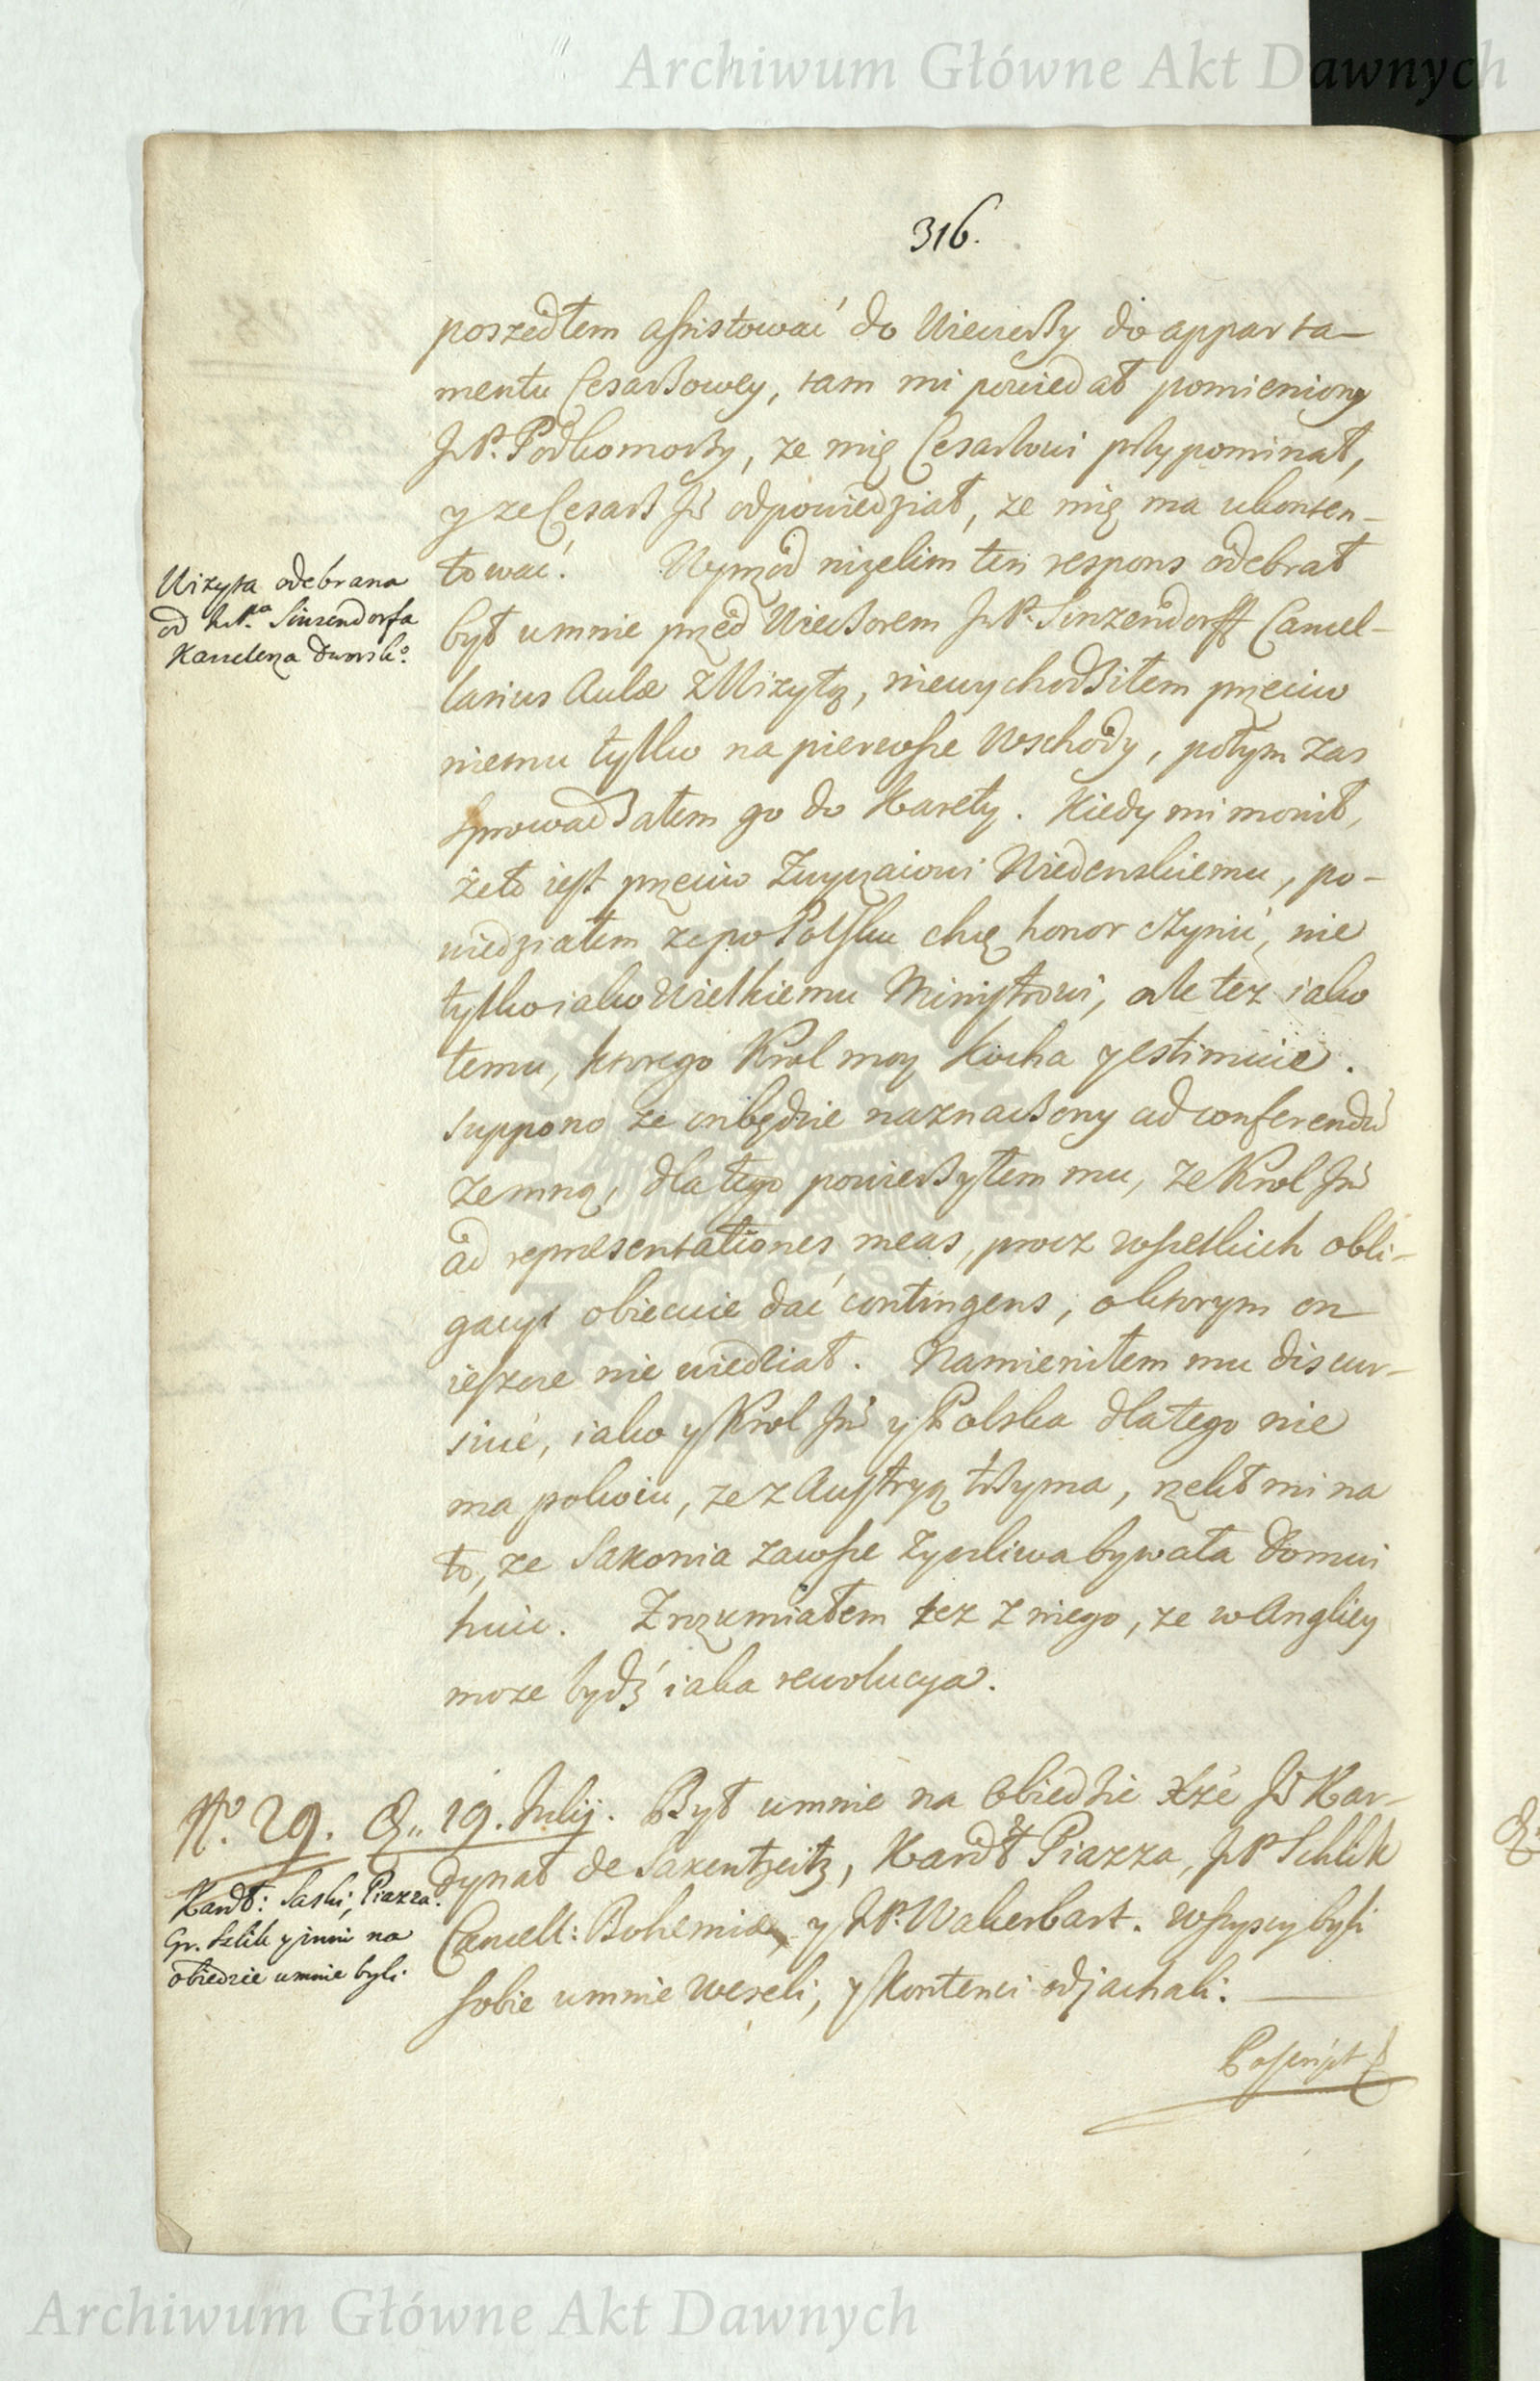 Archiwum Główne Akt Dawnych
316.
poszedłem assistować do Wieczerzy do apparta-
mentu Cesarzowey, tam mi powiedał pomieniony
JP. Podkomorzy, ze mię Cesarzowi przypominał,
y ze Cesarz Jć odpowiedział, ze mię ma ukonten-
tować. Wprzod nizelim ten respons odebrał
był umnie przed Wieczorem JP. Sinzendorff Cancel-
larius Aulæ z Wizytą, niewychodziłem przeciw
niemu tylko na pierwsze Wschody, potym zas
sprowadzałem go do Karety. Kiedy mi monił,
żeto iest przeciw Zwyczaiowi Wiedenskiemu, po-
wiedziałem ze po Polsku chcę honor czynić, nie
tylko iako Wielkiemu Ministrowi, ale tez iako
temu, ktorego Krol moy kocha y estimuie.
suppono ze onbędzie naznaczony ad conferendū
zemną, dla tego powierzyłem mu, ze Krol Jć
ad representationes meas, procz wszelkich obli-
gacyi obiecuie dać contingens, oktorym on
ieszcze nie wiedział. Namieniłem mu discur-
sivé, iako y Krol Jć y Polska dlatego nie
ma pokoiu, ze z Austryą trzyma, rzekł mi na
to, ze Saxonia zawsze zyczliwa bywała Domui
huic. Zrozumiałem tez z niego, ze w Angliey
moze bydź iaka rewolucya.
Wizyta odebrana
od JP.ª Sinzendorfa
Kanclerza Dworsk:º
Nº. 29. D. 19. Julij. Był umnie na Obiedzie Xżé Jć Kar-
dynał de Saxentzeitz, Kardł Piazza, JP Schlik
Cancell: Bohemiæ, y JP. Wakerbart. wszyscy byli
sobie umnie weseli, y kontenci odjachali.
Kardł: Saski, Piazza.
Gr. Szlik y inni na
obiedzie umnie byli.
Postscript
ARCHIWUM GŁÓWNE AKT DAWNYCH
Archiwum Główne Akt Dawnych